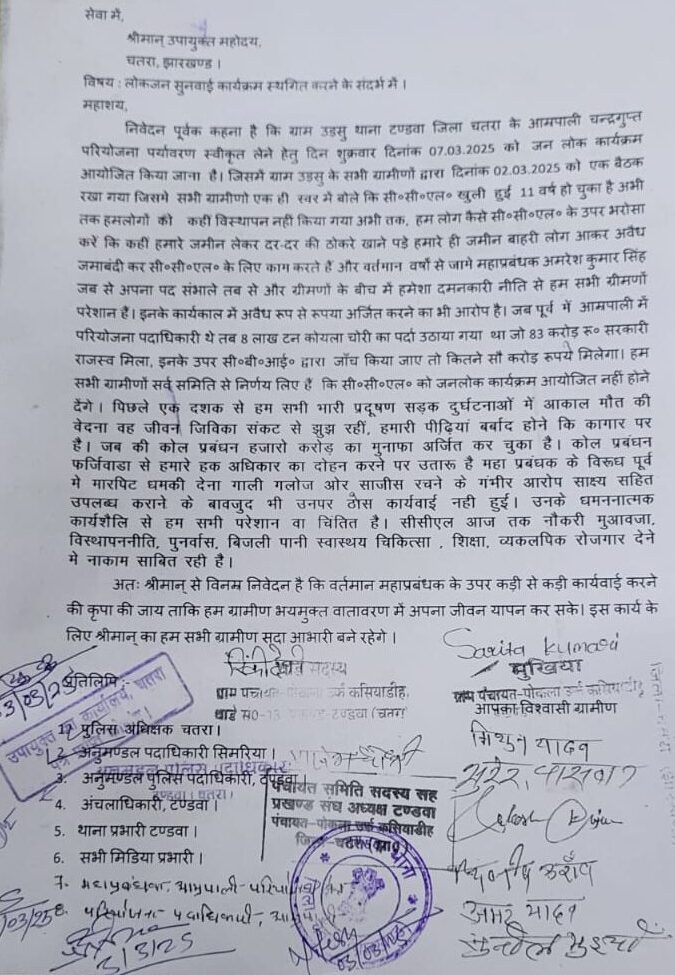 सेवा में,
श्रीमान् उपायुक्त महोदय,
चतरा, झारखण्ड ।
विषय : लोकजन सुनवाई कार्यक्रम स्थगित करने के संदर्भ में ।
महाशय,
निवेदन पूर्वक कहना है कि ग्राम उड़सु थाना टण्डवा जिला चतरा के आमपाली चन्द्रगुप्त
परियोजना पर्यावरण स्वीकृत लेने हेतु दिन शुक्रवार दिनांक 07.03.2025 को जन लोक कार्यक्रम
आयोजित किया जाना है। जिसमें ग्राम उड़सु के सभी ग्रामीणों द्वारा दिनांक 02.03.2025 को एक बैठक
रखा गया जिसमे सभी ग्रामीणो एक ही स्वर में बोले कि सी०सी०एल० खुली हुई 11 वर्ष हो चुका है अभी
तक हमलोगों की कहीं विस्थापन नहीं किया गया अभी तक, हम लोग कैसे सी०सी०एल० के उपर भरोसा
करें कि कहीं हमारे जमीन लेकर दर-दर की ठोकरे खाने पड़े हमारे ही जमीन बाहरी लोग आकर अवैध
जमाबंदी कर सी०सी०एल० के लिए काम करते हैं और वर्तमान वर्षो से जागे महाप्रबंधक अमरेश कुमार सिंह
जब से अपना पद संभाले तब से और ग्रीमणों के बीच में हमेशा दमनकारी नीति से हम सभी ग्रीमणों
परेशान हैं। इनके कार्यकाल में अवैध रूप से रूपया अर्जित करने का भी आरोप है। जब पूर्व में आमपाली में
परियोजना पदाधिकारी थे तब 8 लाख टन कोयला चोरी का पर्दा उठाया गया था जो 83 करोड़ रू० सरकारी
राजस्व मिला, इनके उपर सी०बी०आई० द्वारा जाँच किया जाए तो कितने सौ करोड़ रूपये मिलेगा। हम
सभी ग्रामीणों सर्व समिति से निर्णय लिए हैं कि सी०सी०एल० को जनलोक कार्यक्रम आयोजित नहीं होने
देंगे । पिछले एक दशक से हम सभी भारी प्रदूषण सड़क दुर्घटनाओं में आकाल मौत की
वेदना वह जीवन जिविका संकट से झुझ रहीं, हमारी पीढ़ियां बर्बाद होने कि कागार पर
है। जब की कोल प्रबंधन हजारो करोड़ का मुनाफा अर्जित कर चुका है। कोल प्रबंधन
फर्जिवाडा से हमारे हक अधिकार का दोहन करने पर उतारू है महा प्रबंधक के विरूध पूर्व
मे मारपिट धमकी देना गाली गलोज ओर साजीस रचने के गंभीर आरोप साक्ष्य सहित
उपलब्ध कराने के बावजुद भी उनपर ठोस कार्यवाई नही हुई। उनके धमननात्मक
कार्यशैलि से हम सभी परेशान वा चिंतित है। सीसीएल आज तक नौकरी मुआवजा,
विस्थापननीति, पुनर्वास, बिजली पानी स्वास्थय चिकित्सा , शिक्षा, व्यकलपिक रोजगार देने
मे नाकाम साबित रही है।
अतः श्रीमान् से विनम्र निवेदन है कि वर्तमान महाप्रबंधक के उपर कड़ी से कड़ी कार्यवाई करने
की कृपा की जाय ताकि हम ग्रामीण भयमुक्त वातावरण में अपना जीवन यापन कर सके। इस कार्य के
लिए श्रीमान् का हम सभी ग्रामीण सदा आभारी बने रहेगे ।
Sarita kumari
मुखिया
ग्राम पंचायत-पोकला उर्फ कसियाडीह
आपका विश्वासी ग्रामीण
सदस्य
ग्राम पंचायत-पोकला उर्फ कसियाडीह,
प्रतिलिपि :-
उपायुक्त का कार्यालय, चतरा
1. पुलिस अधिक्षक चतरा।
2. अनुमण्डल पदाधिकारी सिमरिया ।
3. अनुमण्डल पुलिस पदाधिकारी, टण्डवा ।
4. अंचलाधिकारी, टण्डवा ।
5. थाना प्रभारी टण्डवा ।
6. सभी मिडिया प्रभारी ।
7. महाप्रबंधक, आम्रपाली-परियोजना
8. परियोजना पदाधिकारी,
3/3/25
पंचायत समिति सदस्य सह
प्रखण्ड संघ अध्यक्ष टण्डवा
पंचायत-पोकला उर्फ कसियाडीह
मिथुन यादव
Rakesh
अमर यादव